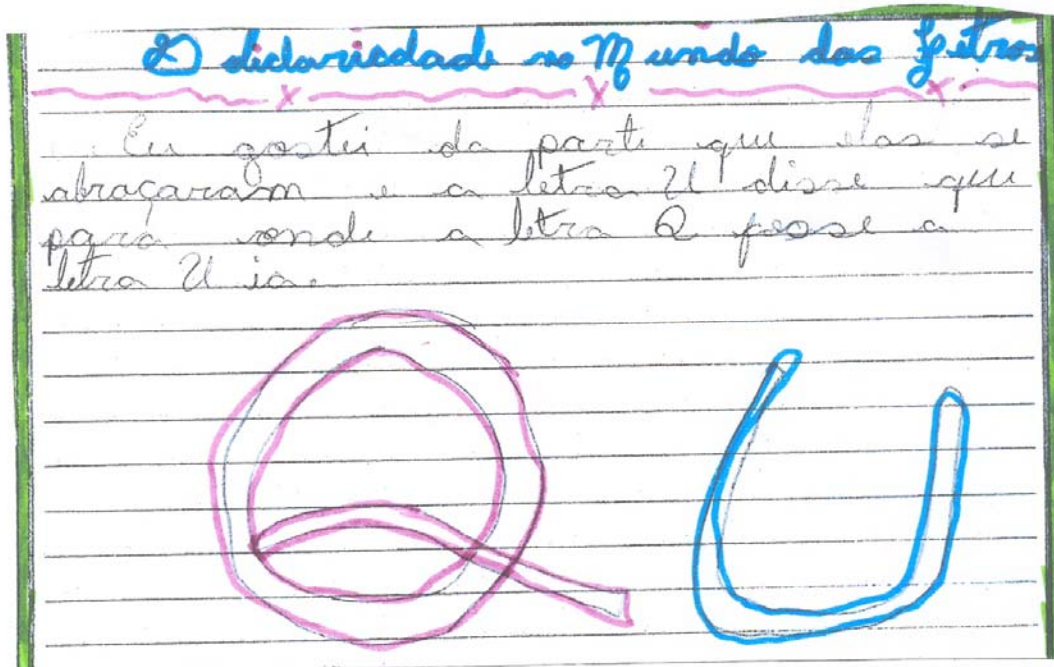 no Mundo das Letras
Eu gostei da parte que elas se
abraçaram e a letra U disse que
para onde a letra Q fosse a
letra U ia.
Q U